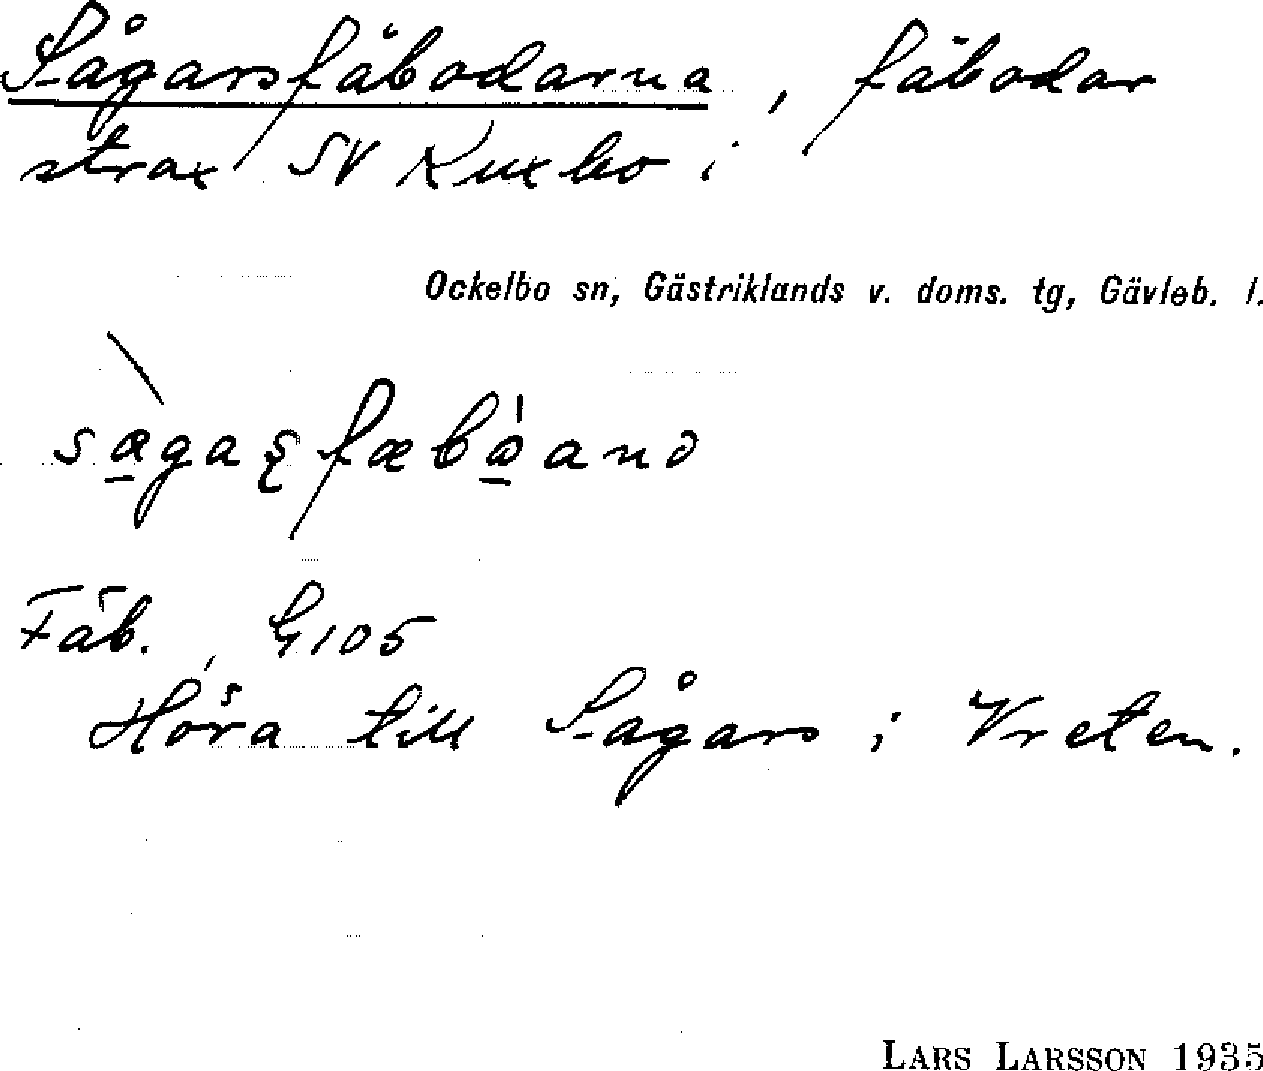 Sågarsfäbodarna, fäbodar
strax SV Kuxbo i
Ockelbo sn, Gästriklands v. doms. tg, Gävleb. l.
Fäb. G105
Höra till Sågars i Vreten.
LARS LARSSON 1935